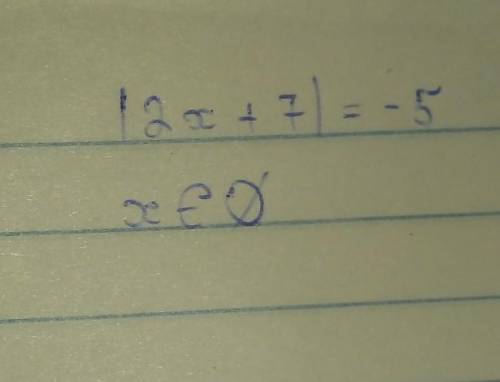 |2x + 7| = -5
x ∈ ∅